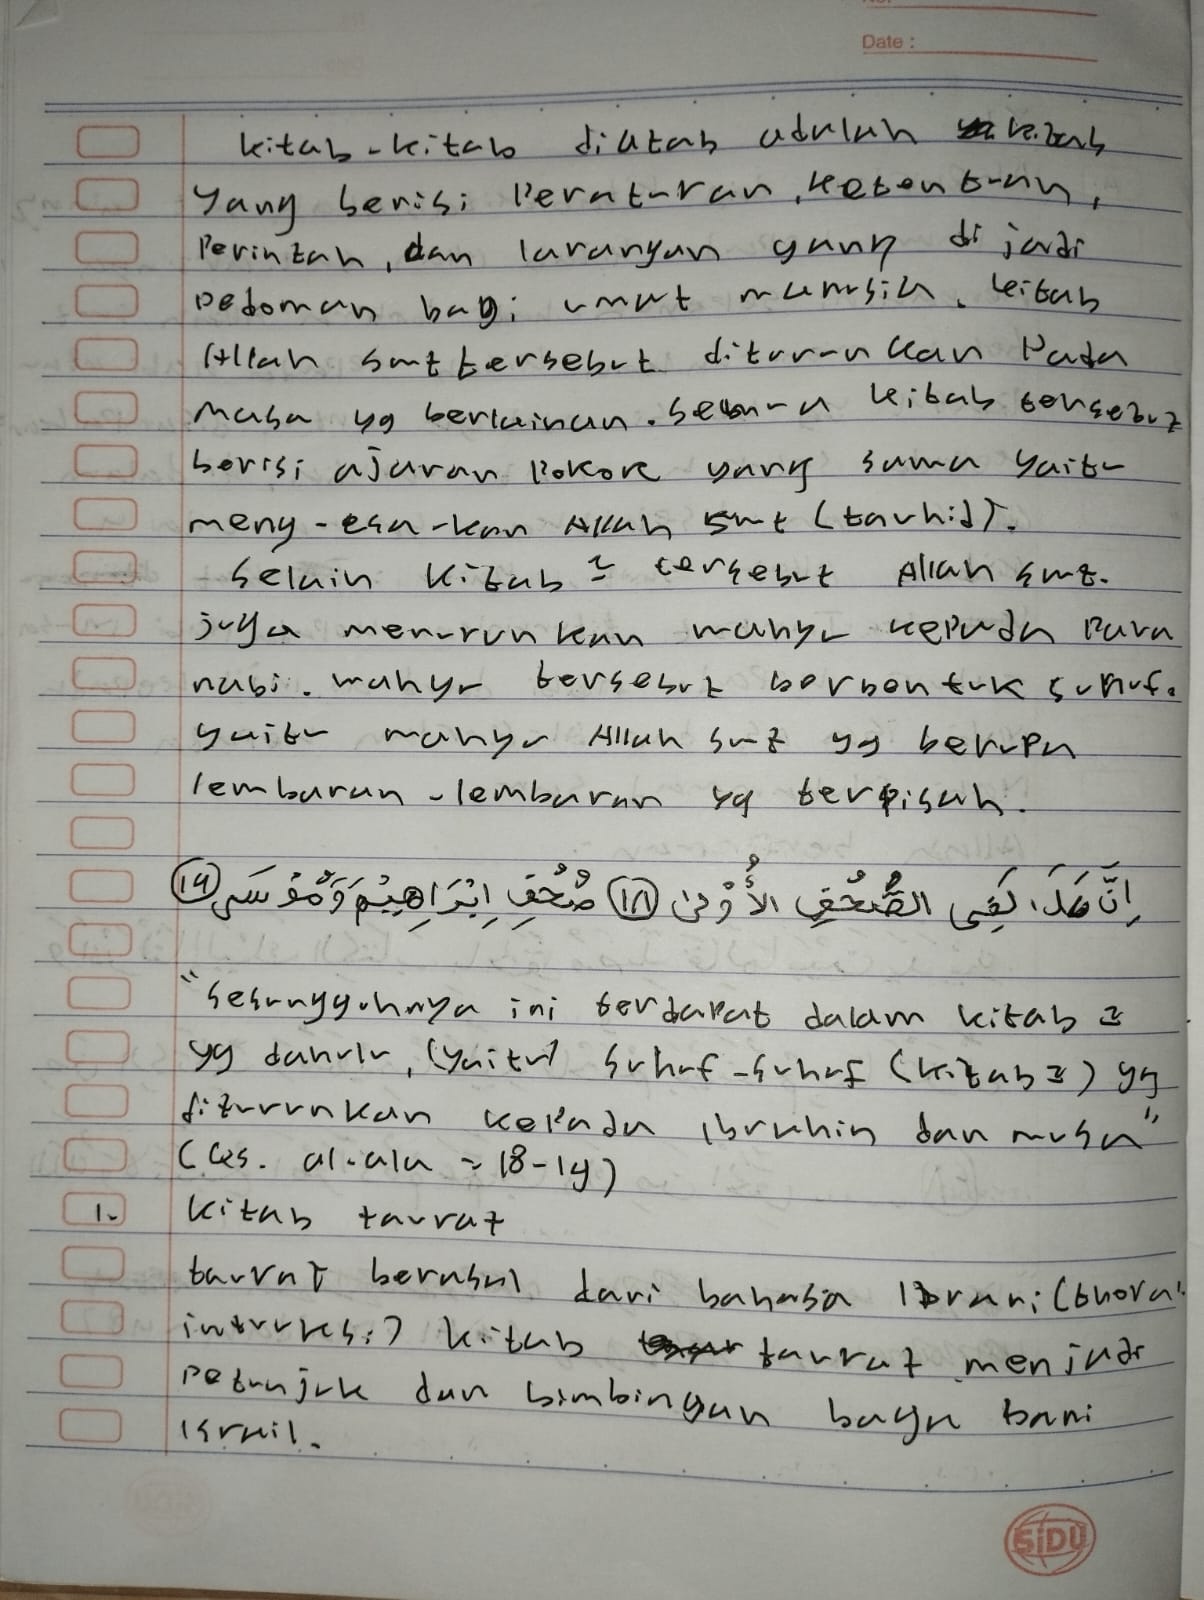 No:
Date :
kitab-kitab diatas adalah kitab
yang berisi Peraturan, ketentuan,
Perintah, dan larangan yang di jadi
pedoman bagi umat manusia. kitab
Allah swt tersebut diturunkan Pada
masa yg berlainan. semua kitab tersebut
berisi ajaran Pokok yang sama yaitu
meng-esa-kan Allah swt (tauhid).
Selain kitab 2 tersebut Allah swt.
juga menurunkan wahyu kepada para
nabi. wahyu tersebut berbentuk suhuf.
yaitu wahyu Allah swt yg berupa
lembaran-lembaran yg terpisah.
اِنَّ هَذَا لَفِى الصُّحُفِ الْأُوْلىٰ (١٨) صُحُفِ اِبْرَاهِيْمَ وَمُوْسَى (١٩)
"Sesungguhnya ini terdapat dalam kitab 2
yg dahulu, (yaitu) suhuf-suhuf (kitab 2) yg
diturunkan kepada Ibrahim dan musa"
(Qs. al-ala = 18-19)
1. kitab taurat
taurat berasal dari bahasa Ibrani (thora:
intruksi) kitab taurat menjadi
petunjuk dan bimbingan bagu bani
israil.
SiDU